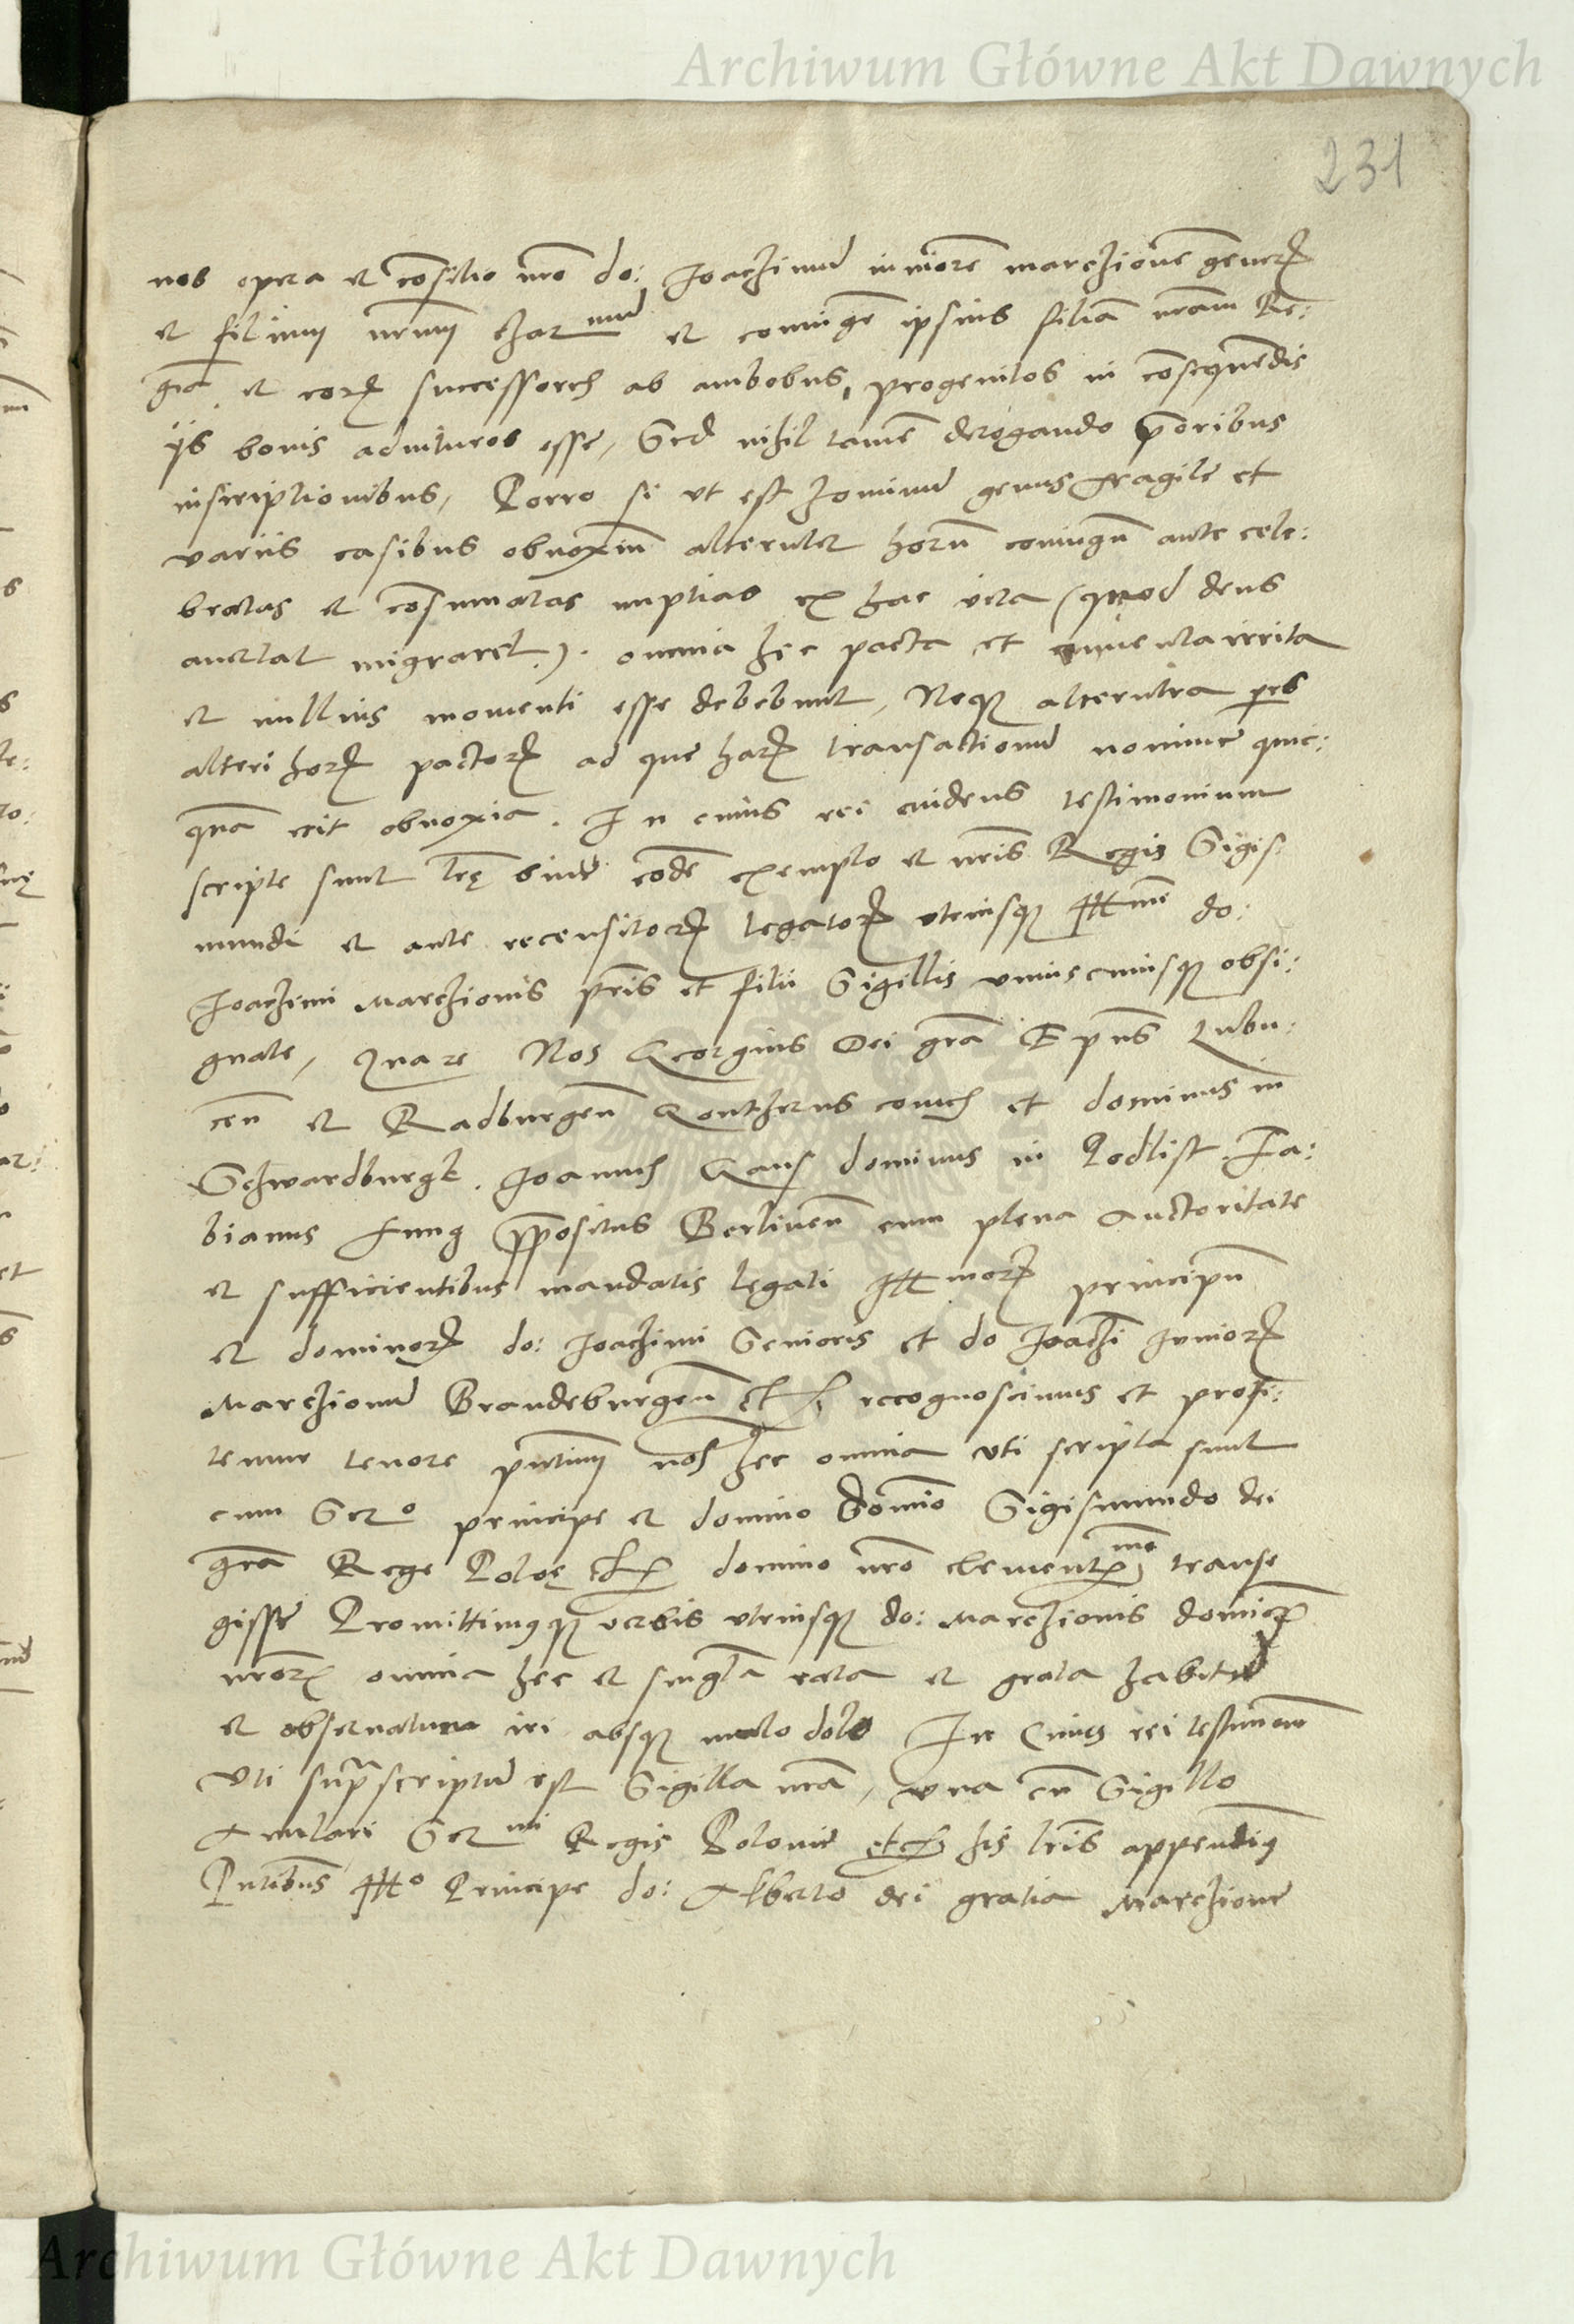 Archiwum Główne Akt Dawnych
231
nos opera et cōsilio nr̄o do: Joachimū iuniorē marchionē generꝫ
et filium nrūm charmū et coniugē ipsius filiā nrām Re:
giā et eorꝫ successores ab ambobus progenitos in cōsequēdis
ijs bonis adiuturos esse, Sed nihil tamē derogando prioribus
inscriptionibus, Porro si ut est hominū genus fragile et
variis casibus obnoxiū alteruter horū coniugū ante cele:
bratas et cōsumatas nuptias ex hac vita (quod deus
auertat migraret). omnia hec pacta et conuenta irrita
et nullius momenti esse debebunt, Neqꝫ alterutra pars
alteri horꝫ pactorꝫ ad que harꝫ transactionū nomine quic:
quā erit obnoxia. In cuius rei euidens testimonium
scripte sunt lrę̄ bine eodē exemplo et nrīs Regis Sigis:
mundi et ante recensitorꝫ legatorꝫ utriusqꝫ Illme do:
Joachimi Marchionis pr̄is et filii Sigillis uniuscuiusqꝫ obsi:
gnate, Quare Nos Georgius Dei grā Ep̄us Lubu:
cen̄ et Radburgen̄ Gontherus comes et dominus in
Schwardburgk. Joannes Gans dominus in Podlist. Fa:
bianus Fung ppositus Berlinen̄ cum plena Auctoritate
et sufficientibus mandatis legati Illmorꝫ principū
et dominorꝫ do: Joachimi Senioris et do Joachī Juniorꝫ
Marchionū Brandeburgen̄ etc recognoscimus et profi:
temur tenore pn̄tium nos hec omnia uti scripta sunt
cum Sermo principe et domino domīo Sigismundo dei
grā Rege Polōę etc domino nrō clementmo transe
gisse Promittimusqꝫ verbis utriusqꝫ do: Marchionis domīorꝫ
nrōrꝫ omnia hec et singla rata et grata habitū
et obseruatum iri absqꝫ malo dolo In Cuius rei testimoniū
Uti suprascriptū est Sigilla nrā, una cū Sigillo
Anulari Sermi Regis Polonie etc his lrīs appendimus
Pn̄tibus Illmo Principe do: Alberto dei gratia Marchione
Archiwum Główne Akt Dawnych